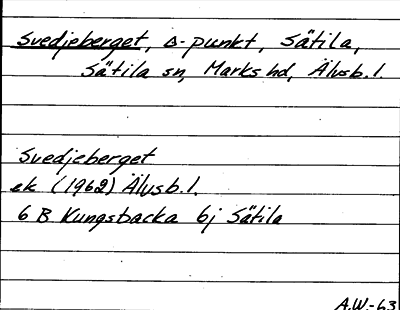 Svedjeberget, Δ-punkt, Sätila,
Sätila sn, Marks hd, Älvsb. l.
Svedjeberget
ek (1962) Älvsb. l.
6 B Kungsbacka 6j Sätila
A.W.-63